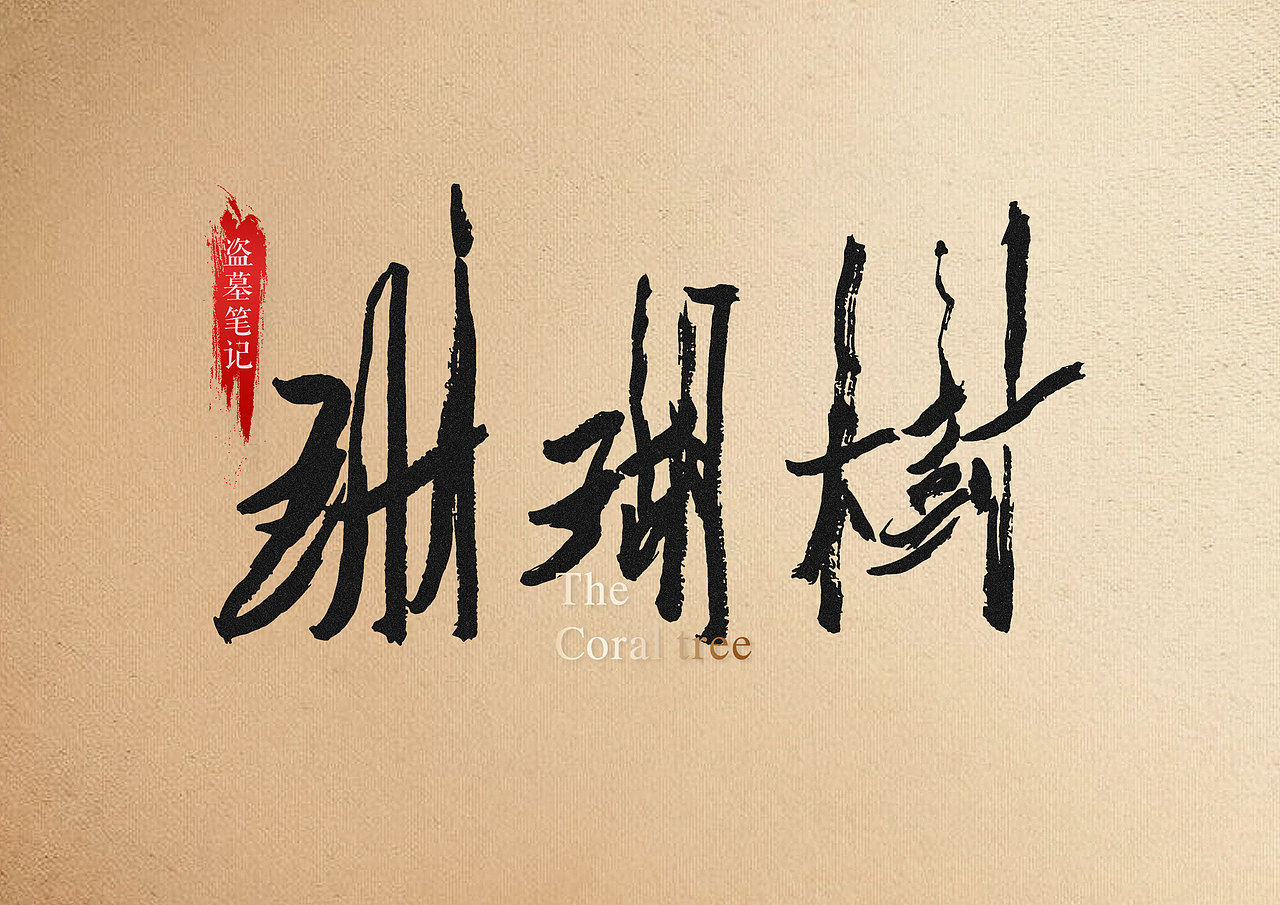 盗墓笔记
珊瑚樹
The
Coral tree